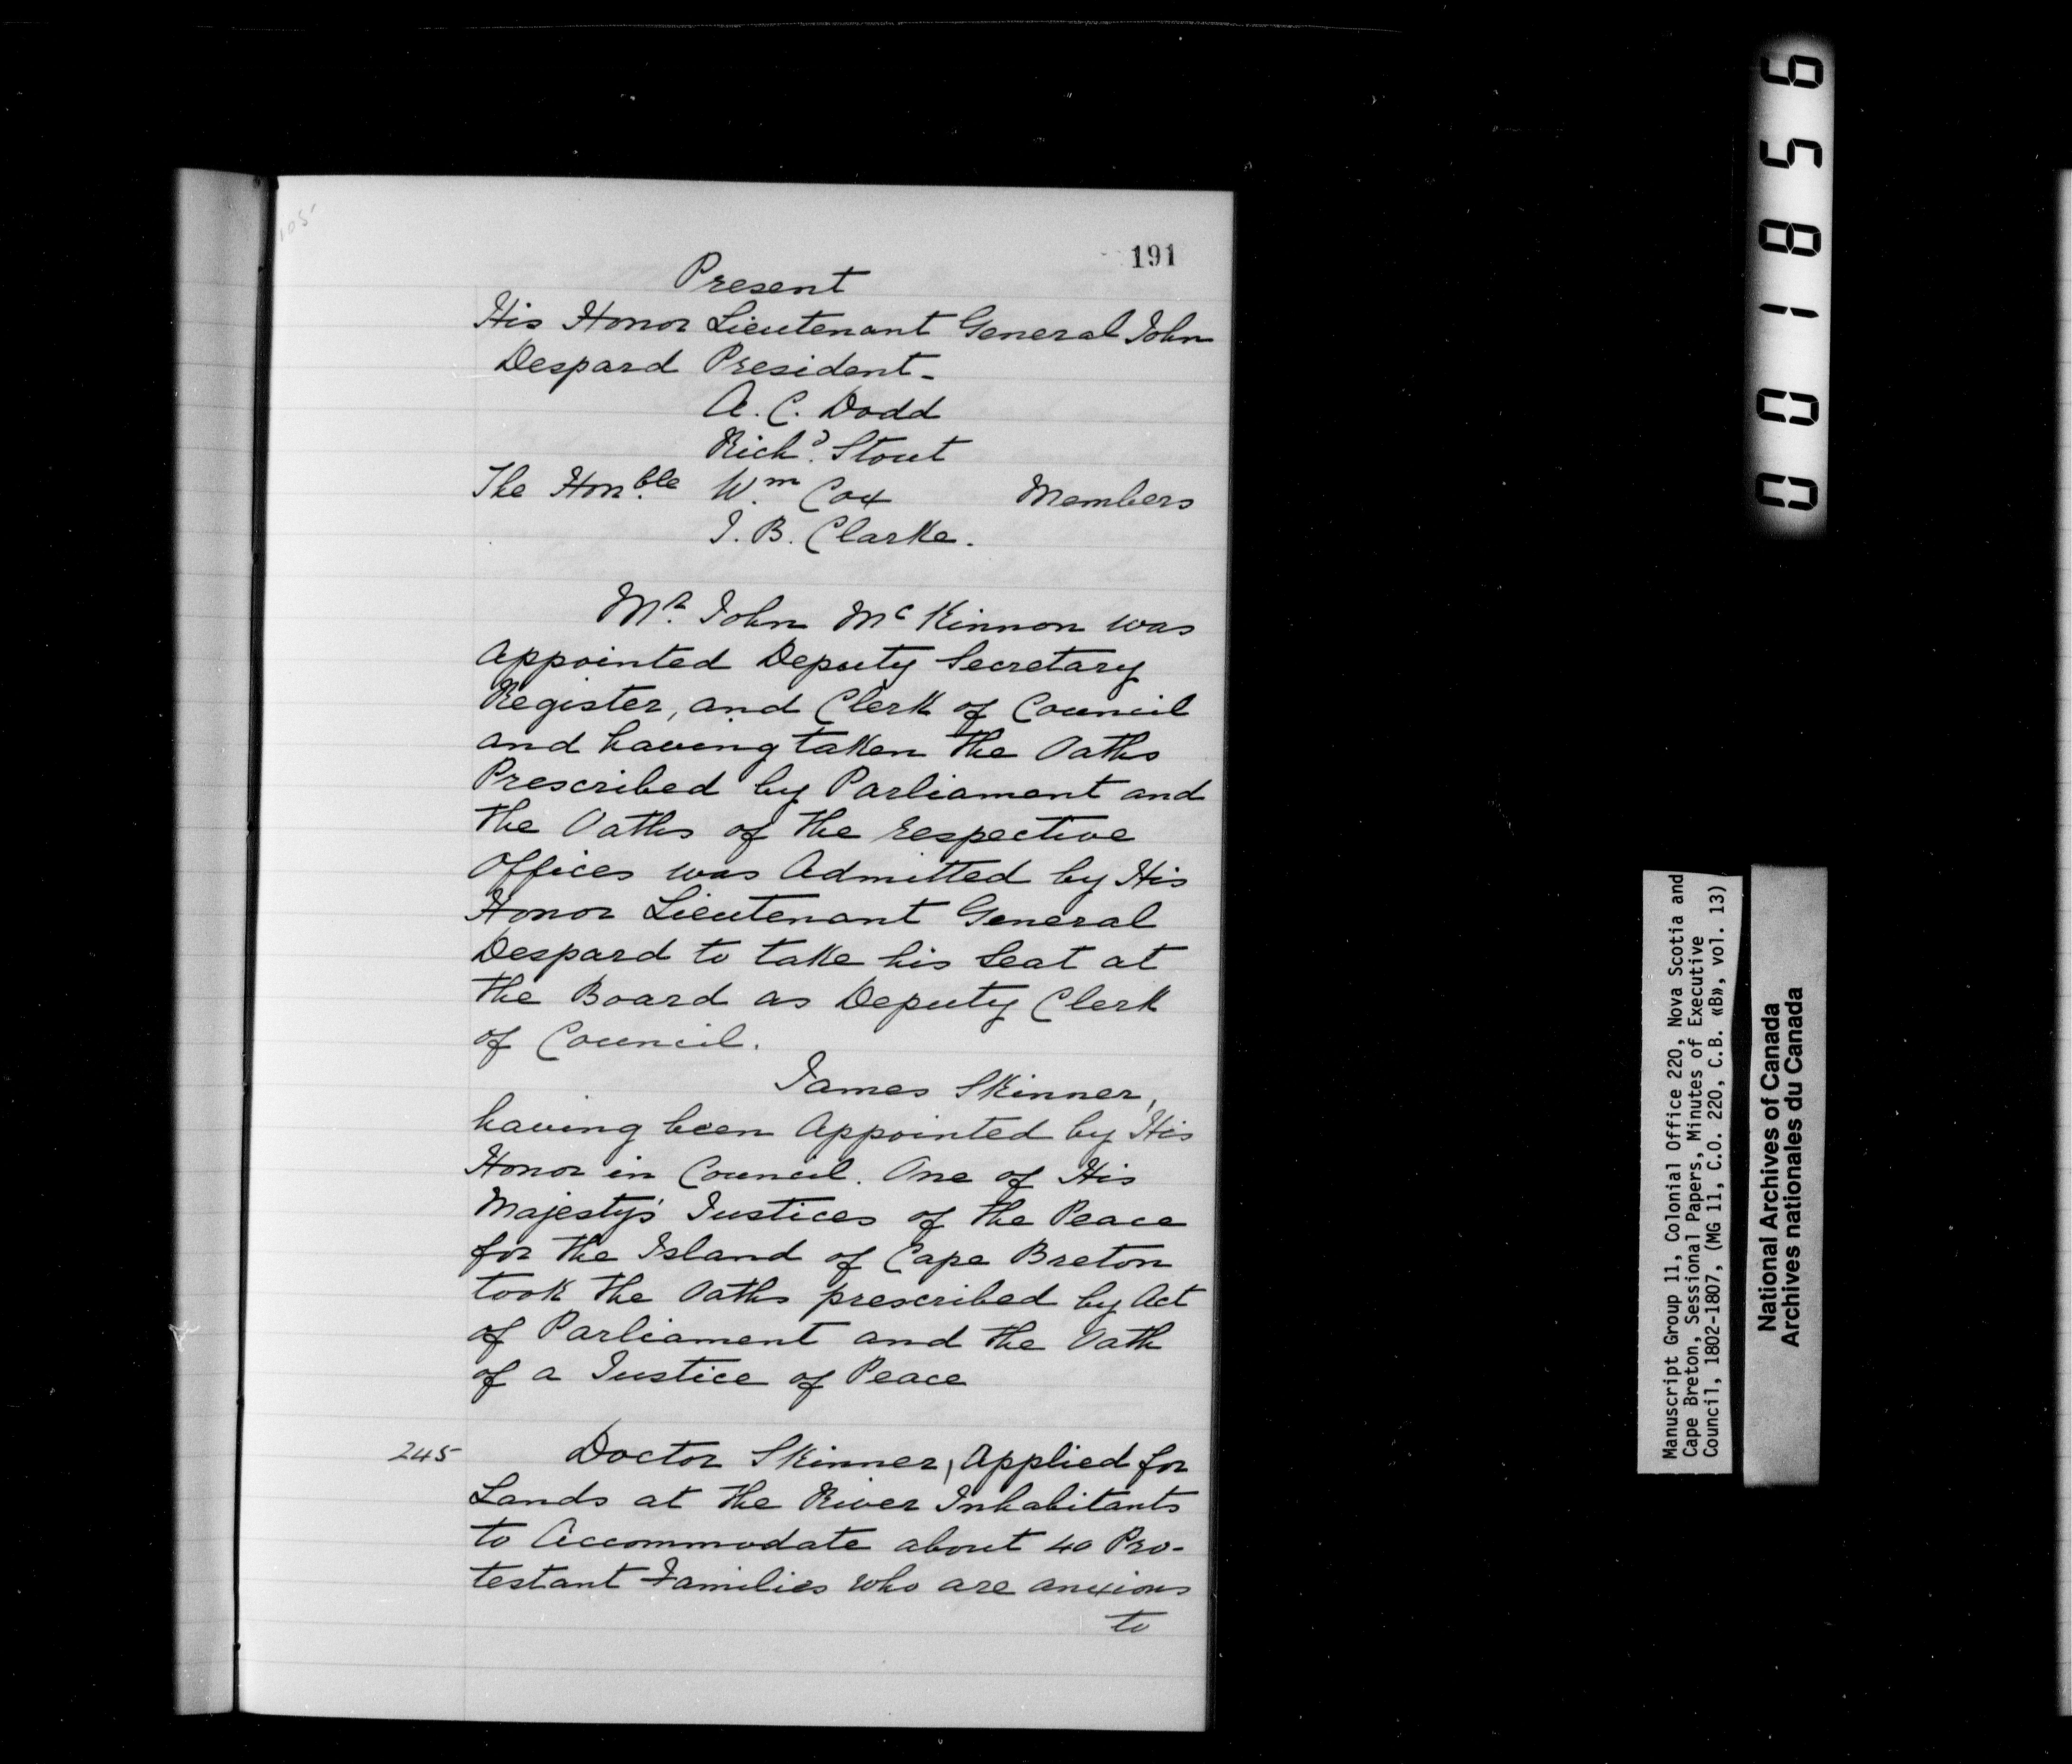 105
191
Present
His Honor Lieutenant General John
Despard President-
A. C. Dodd
Richd. Stout
The Honble Wm Cox Members
I. B. Clarke.
Mr. John McKinnon was
appointed Deputy Secretary
Register, and Clerk of Council
and having taken the Oaths
Prescribed by Parliament and
the Oaths of the respective
Offices was Admitted by His
Honor Lieutenant General
Despard to take his Seat at
the Board as Deputy Clerk
of Council.
James Skinner,
having been Appointed by His
Honor in Council. One of His
Majesty's Justices of the Peace
for the Island of Cape Breton
took the Oaths prescribed by Act
of Parliament and the Oath
of a Justice of Peace
245 Doctor Skinner, Applied for
Lands at the River Inhabitants
to Accommodate about 40 Pro-
testant Families who are anxious
to
001856
Manuscript Group 11, Colonial Office 220, Nova Scotia and
Cape Breton, Sessional Papers, Minutes of Executive
Council, 1802-1807, (MG 11, C.O. 220, C.B. «B», vol. 13)
National Archives of Canada
Archives nationales du Canada